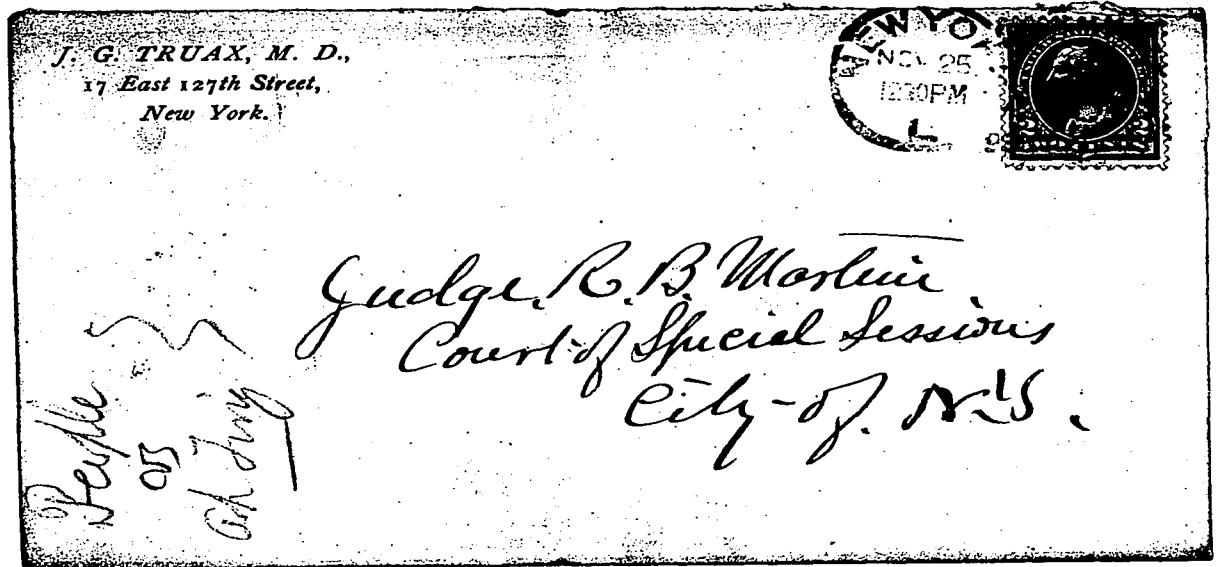 J. G. TRUAX, M. D.,
17 East 127th Street,
New York.
NEW YO
NOV 25
12 30 PM
L
2 2
Judge. R. B. Martin
Court of Special Sessions
City of N.Y.
People
vs